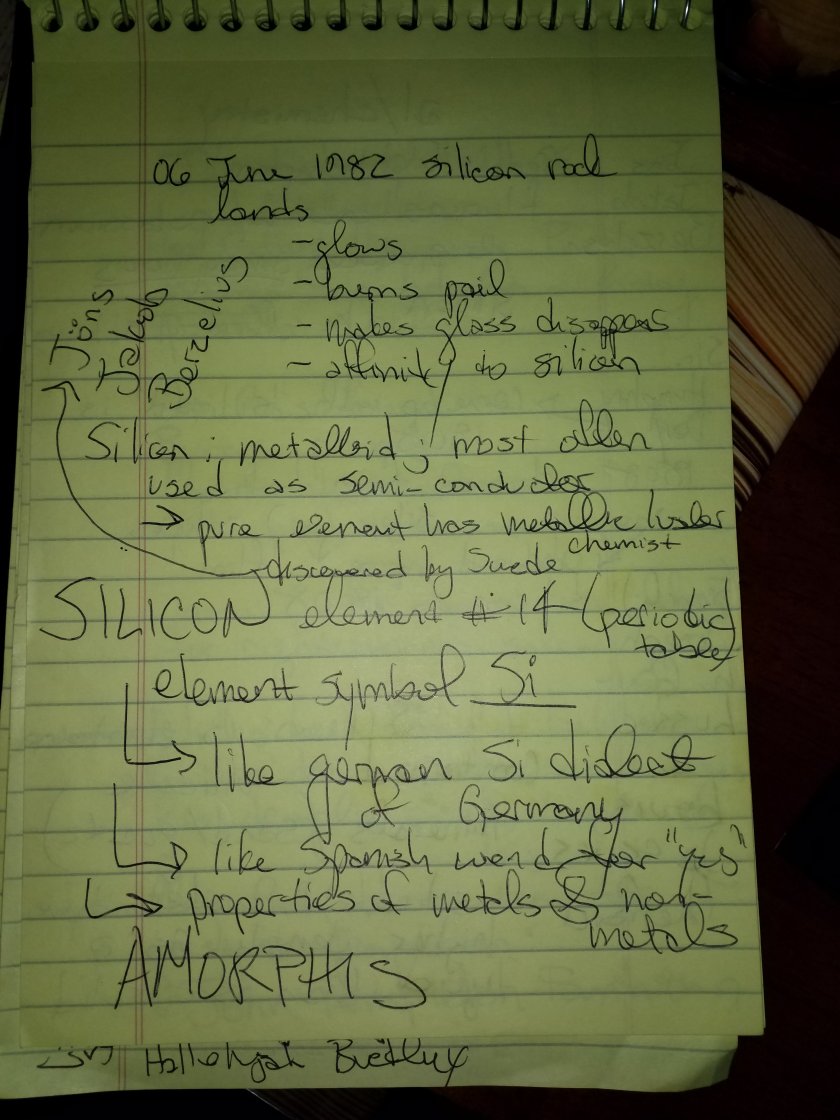 06 June 1982 silicon rock
lands
-glows
-burns pail
-makes glass disappears
-affinity to silicon
Jöns
Jakob
Berzelius
Silicon; metalloid; most often
used as semi-conductor
→ pure element has metallic luster
discovered by Suede chemist
SILICON element #14 (periodic
table)
element symbol Si
like german Si dialect
of Germany
like Spanish word for "yes"
properties of metals & non-
metals
AMORPHIS
Hallelujah